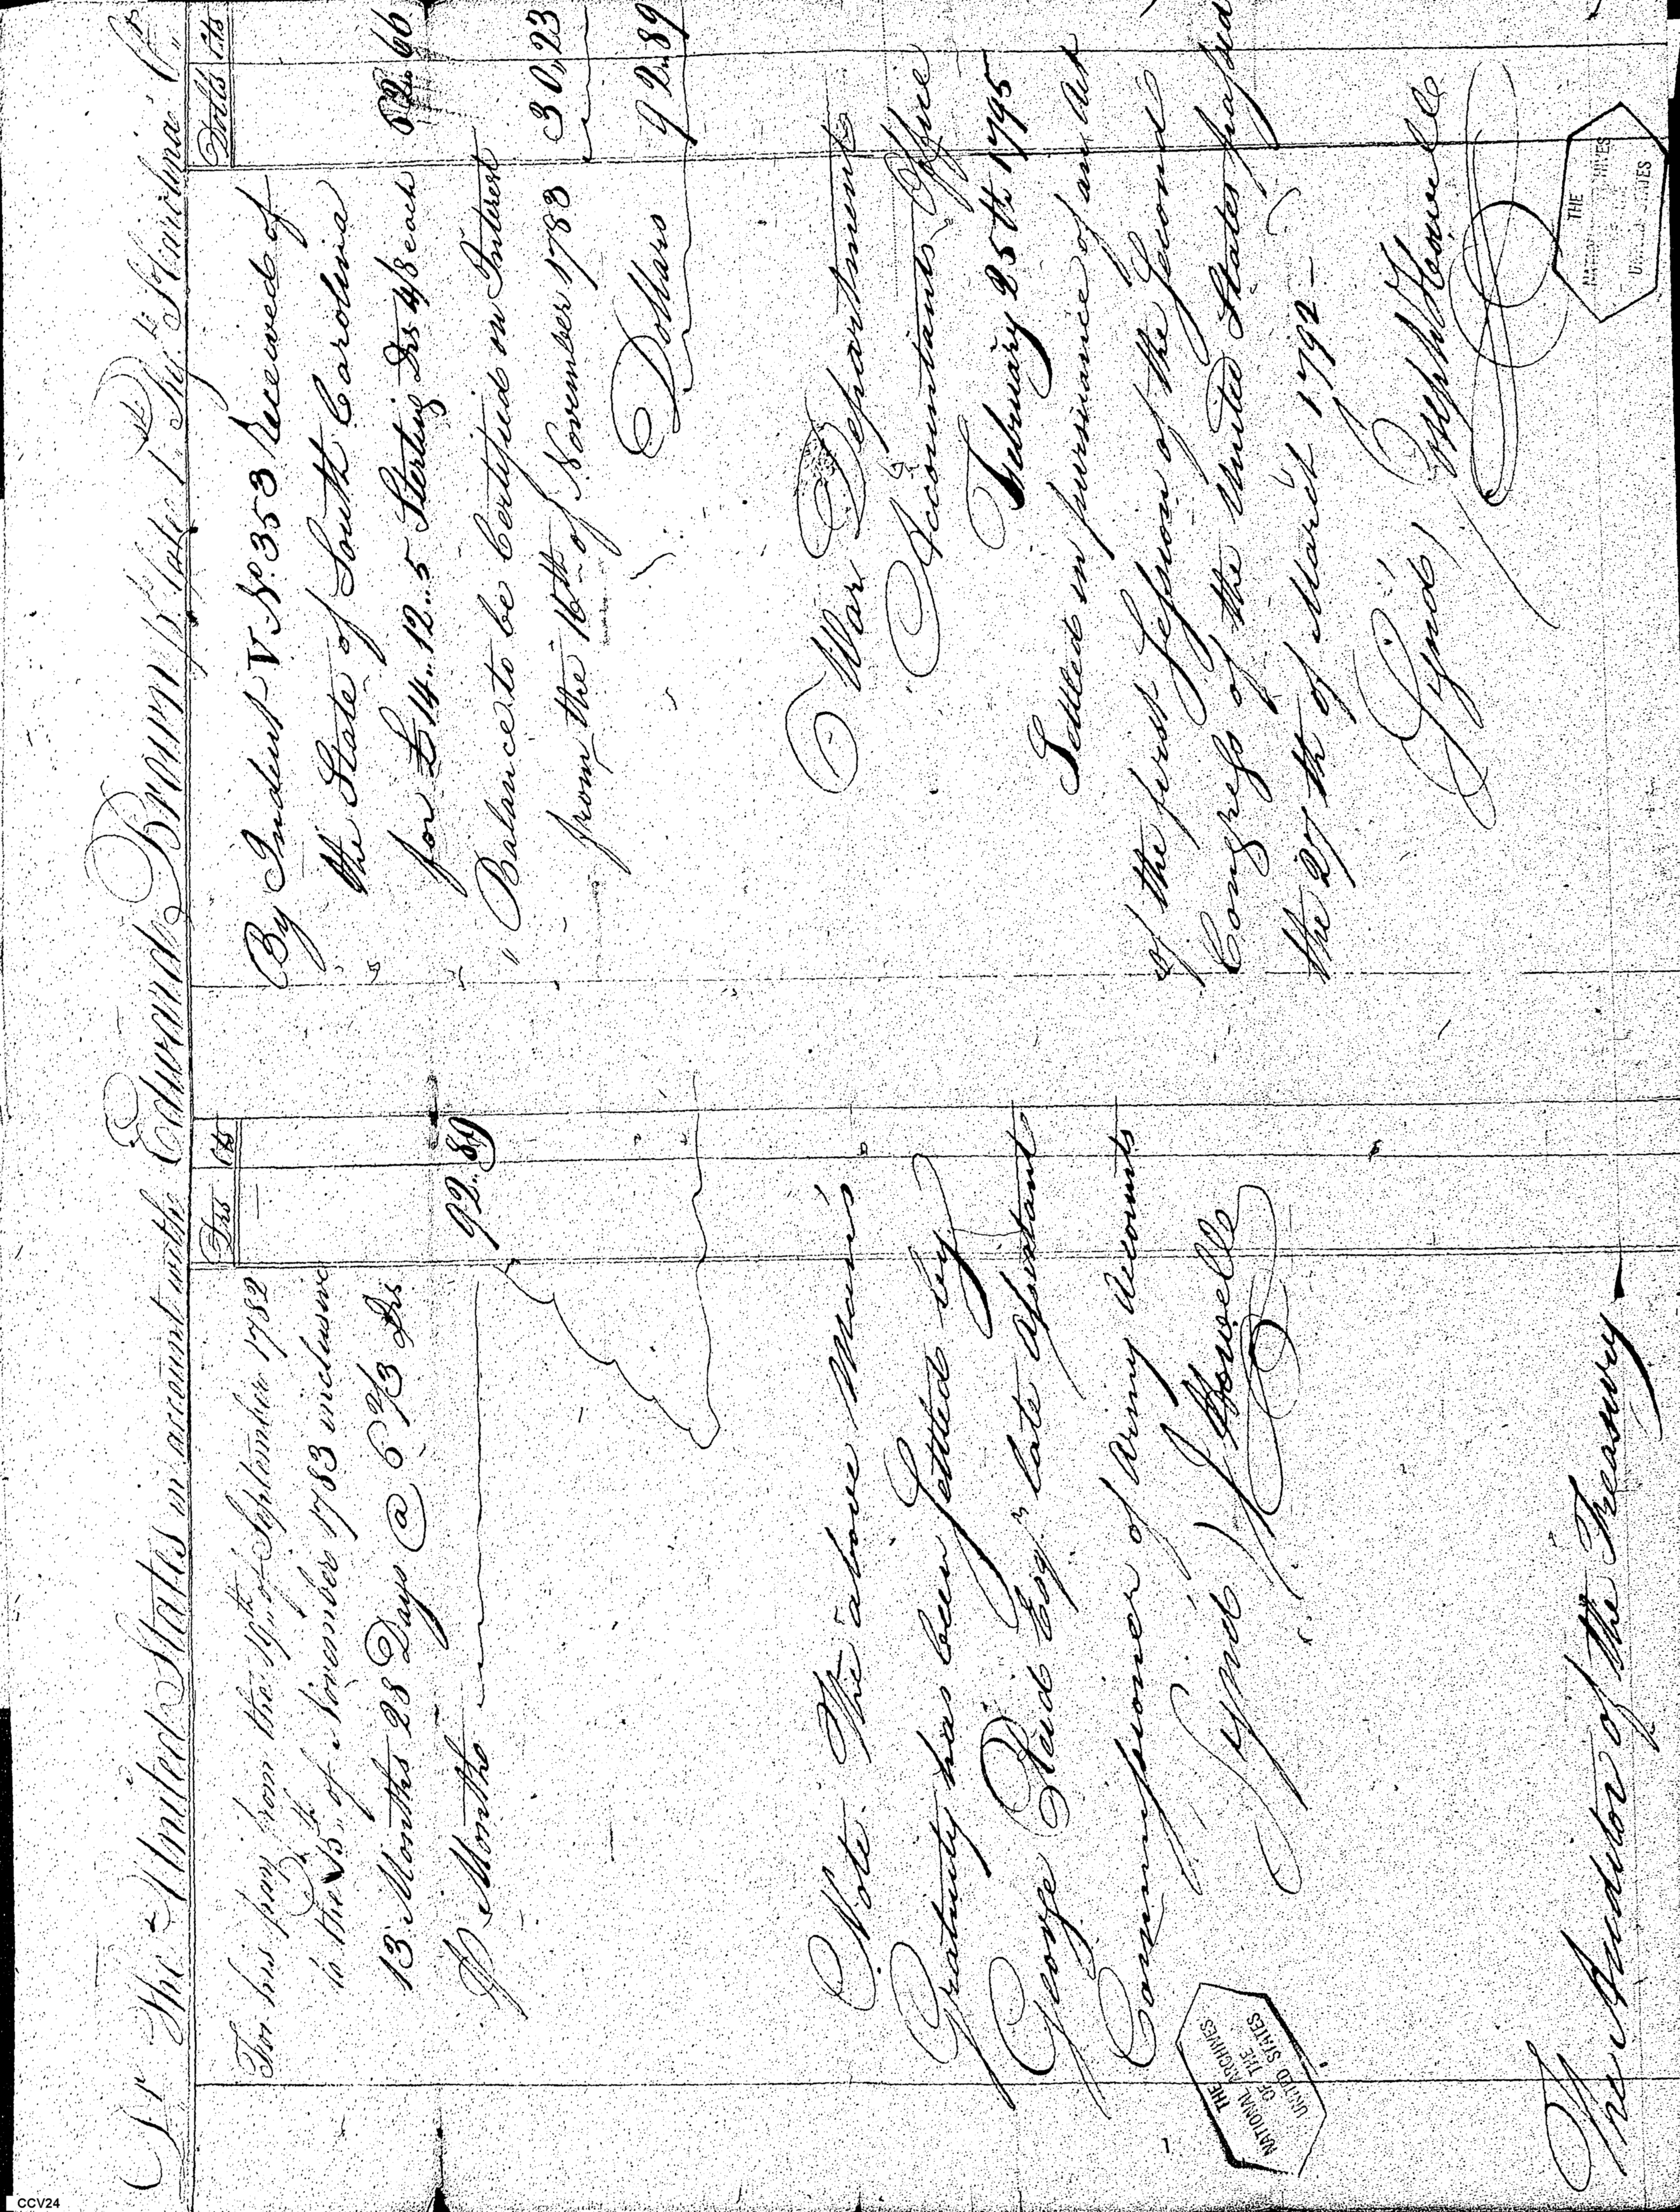 Dr The United States in account with Edmund Brown late Pt. 1 Rt. No Carolina Cr.
Drs Cts
For his pay from the 19th of September 1782
to the 15th of November 1783 inclusive
13 Months 28 Days @ 6 2/3 Drs
P Months 92.. 89
Note The above Man's
Gratuity has been Settled by
George Reid Esqr late Assistant
Commissioner of Army Accounts
Signd J Howell
The Auditor of the Treasury
Dolls Cts
By Indent V No. 353 Received of
the State of South Carolina
for £14..12..5 Sterling Drs 4/8 each 62..66
" Balance to be Certified on Interest
from the 16th of November 1783 30,,23
Dollars 92..89
War Department
Accountants Office
February 25th 1795
Settled in pursuance of an Act
of the first Session of the Second
Congress of the United States passed
the 27th of March 1792 -
Signd, Joseph Howell
THE
NATIONAL ARCHIVES
OF THE
UNITED STATES
THE
NATIONAL ARCHIVES
UNITED STATES
CCV24